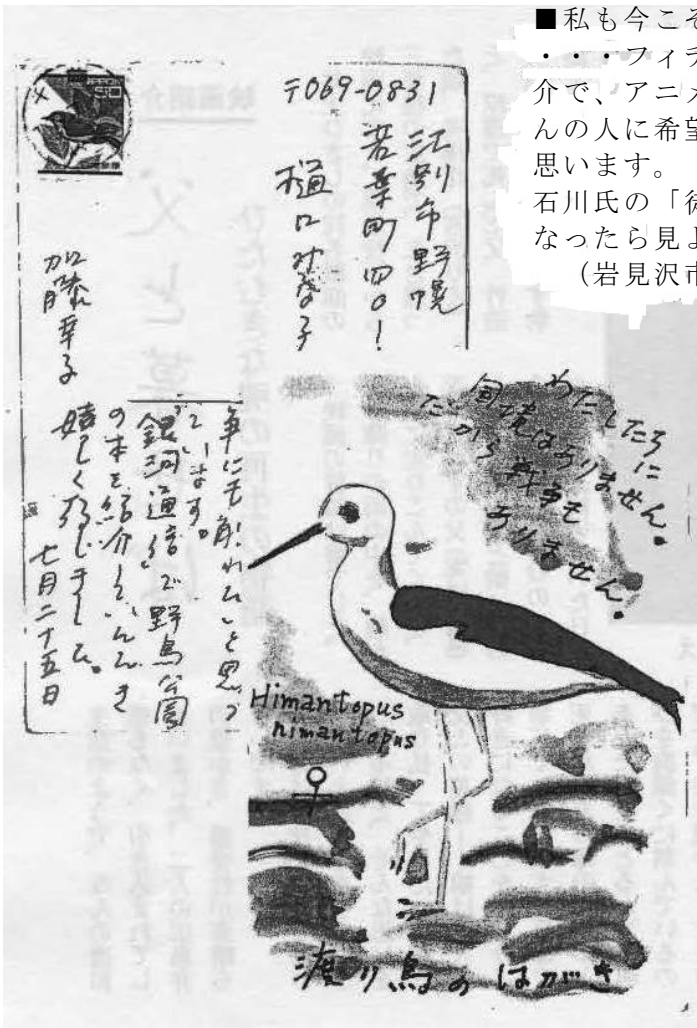 ■私も今こそ
・・・フィラ
介で、アニメ
んの人に希望
思います。
石川氏の「徒
なったら見よ
(岩見沢市
〒069-0831
江別市野幌
若葉町四〇ー
樋口みな子
加藤幸子
争にも創れないと思っ
ています。
"銀河通信"で野鳥公園
の本を紹介していただき
嬉しく存じました。
七月二十五日
わたしたちに
国境はありません。
だから戦争も
ありません。
Himantopus
himantopus
♀
渡り鳥のはがき